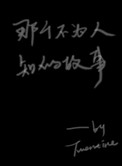 那个不为人
知的故事
——by